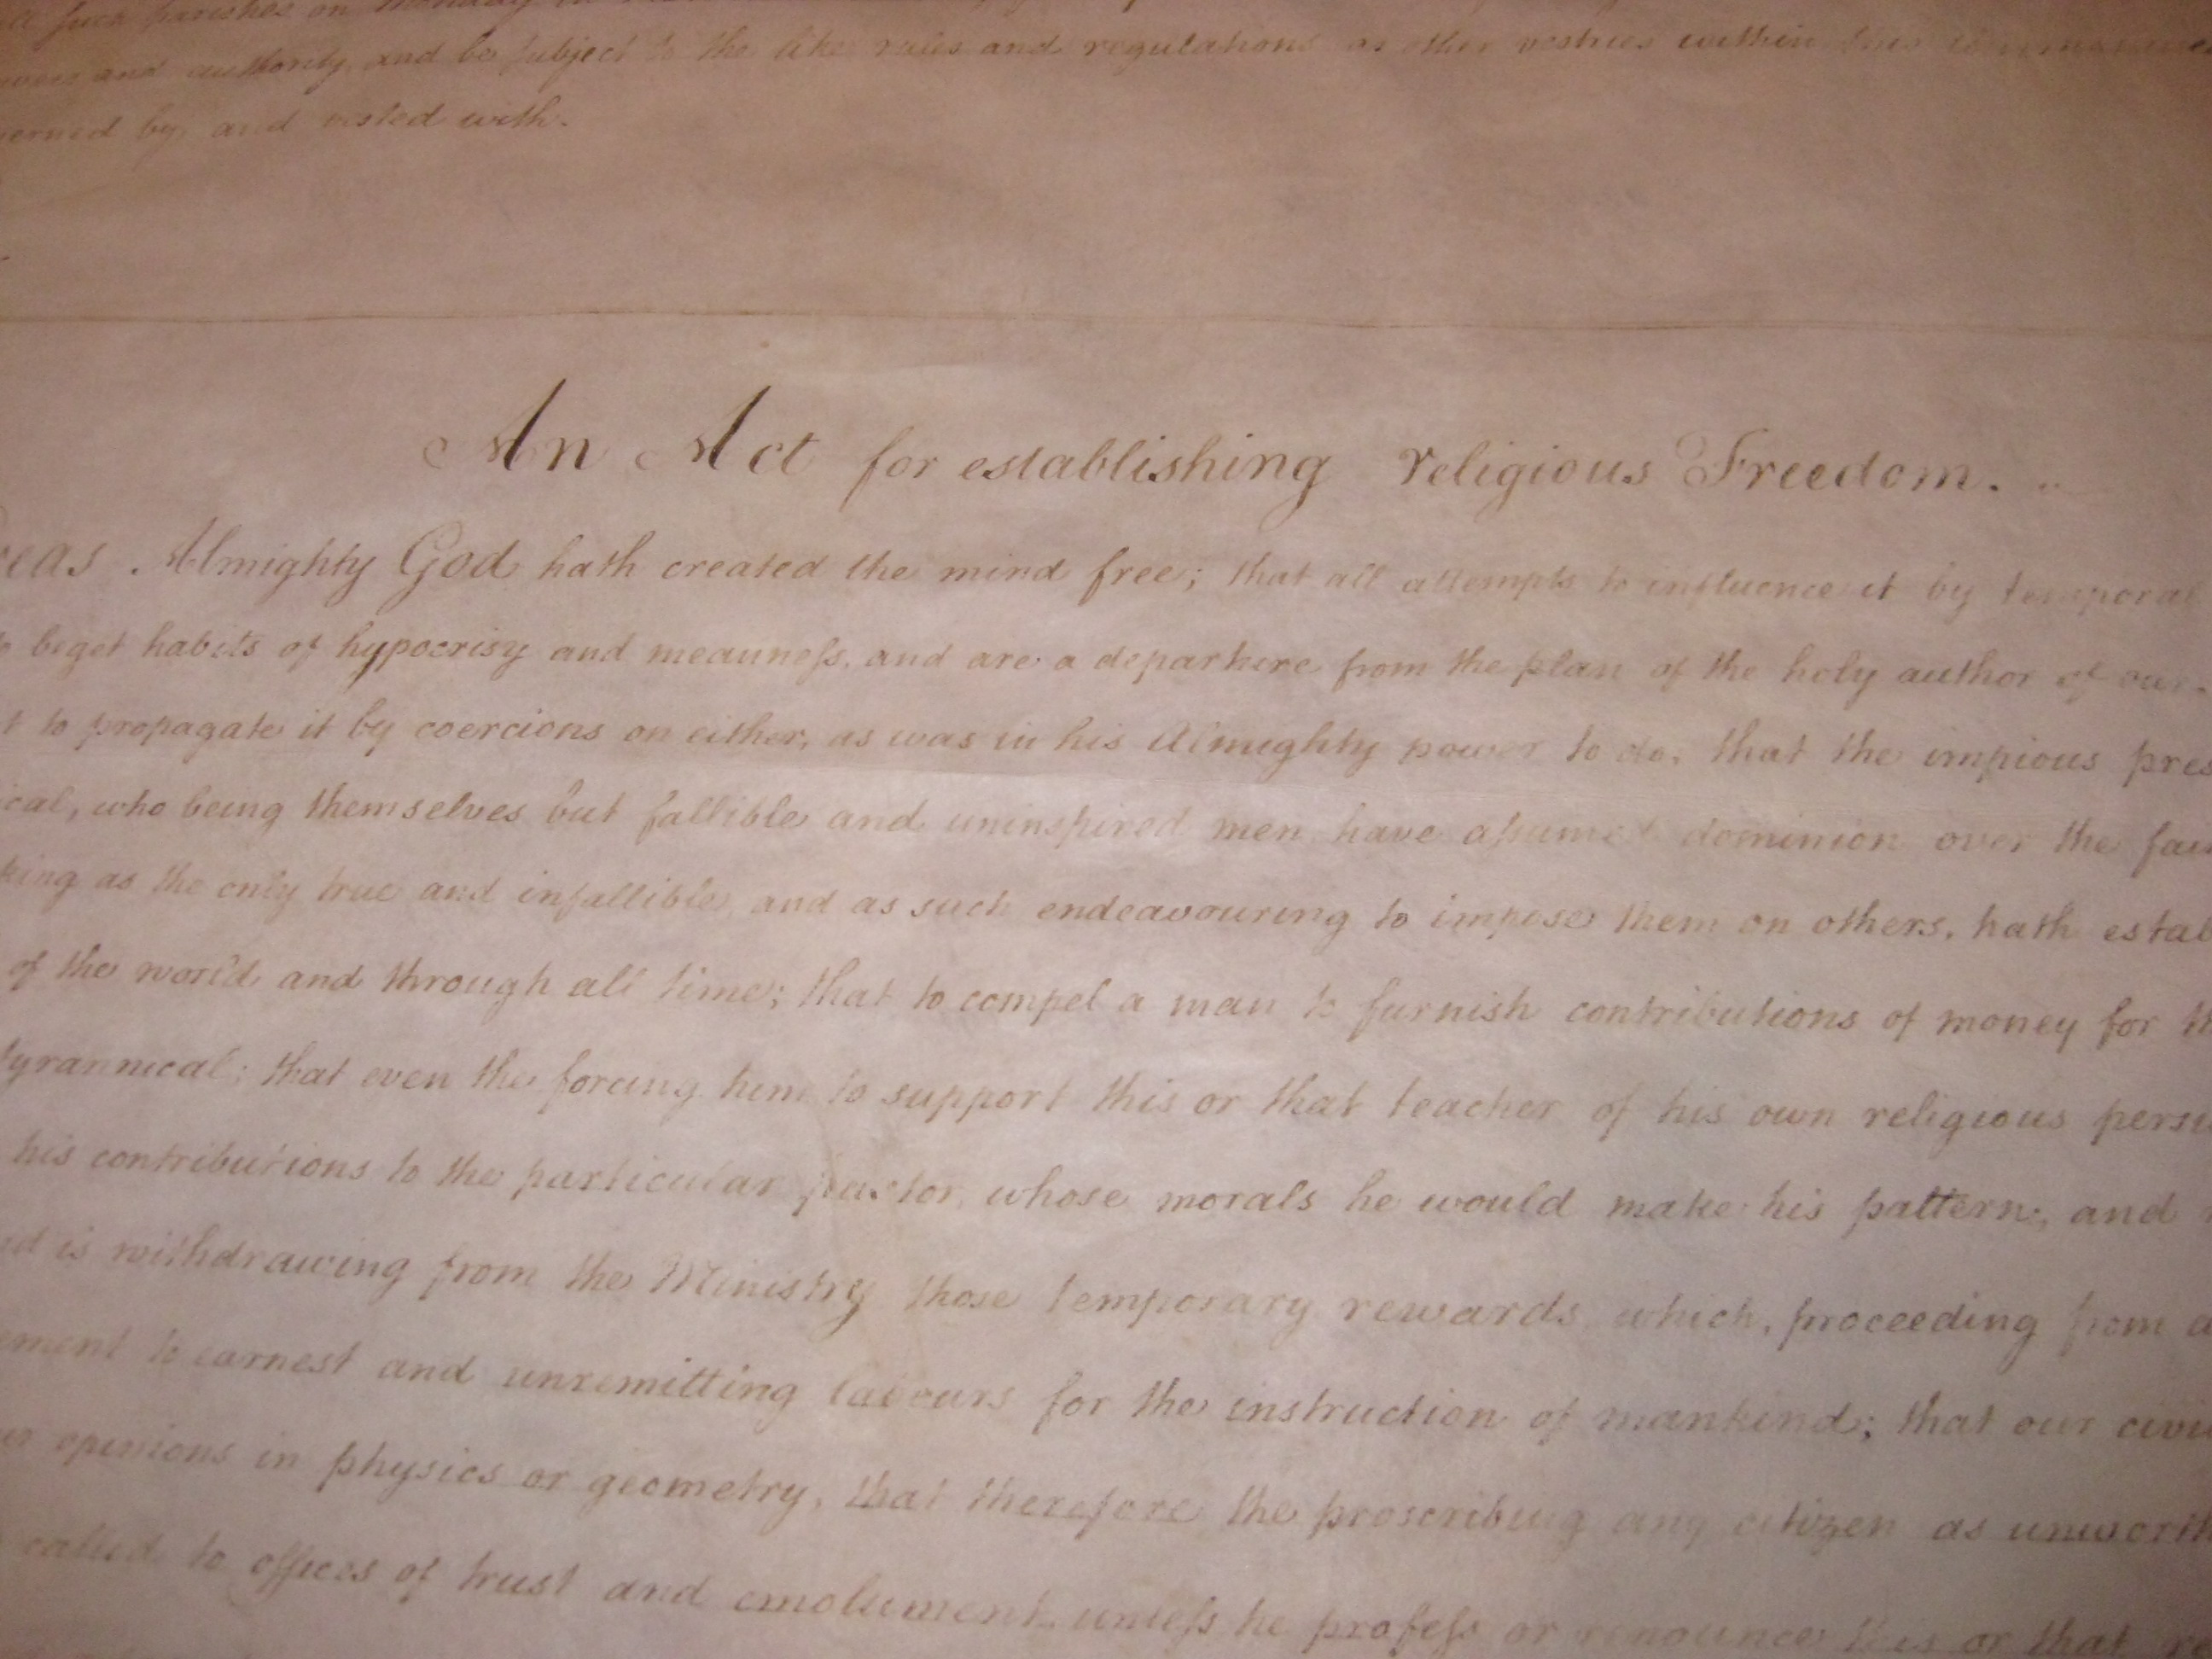 such parishes on Monday in
and authority, and be subject to the like rules and regulations as other vestries within this
erned by, and vested with.
An Act for establishing religious Freedom.
eas Almighty God hath created the mind free; that all attempts to influence it by temporal
beget habits of hypocrisy and meanneſs, and are a departure from the plan of the holy author of our
t to propagate it by coercions on either, as was in his Almighty power to do, that the impious pres
ical, who being themselves but fallible and uninspired men have aſsumed dominion over the fai
king as the only true and infallible, and as such endeavouring to impose them on others, hath estab
of the world and through all time; that to compel a man to furnish contributions of money for th
tyrannical; that even the forcing him to support this or that teacher of his own religious persu
his contributions to the particular pastor, whose morals he would make his pattern, and
d is withdrawing from the Ministry those temporary rewards which, proceeding from a
ement to earnest and unremitting labours for the instruction of mankind; that our civil
opinions in physics or geometry, that therefore the proscribing any citizen as unworth
called to offices of trust and emolument, unleſs he profeſs or renounce this or that re